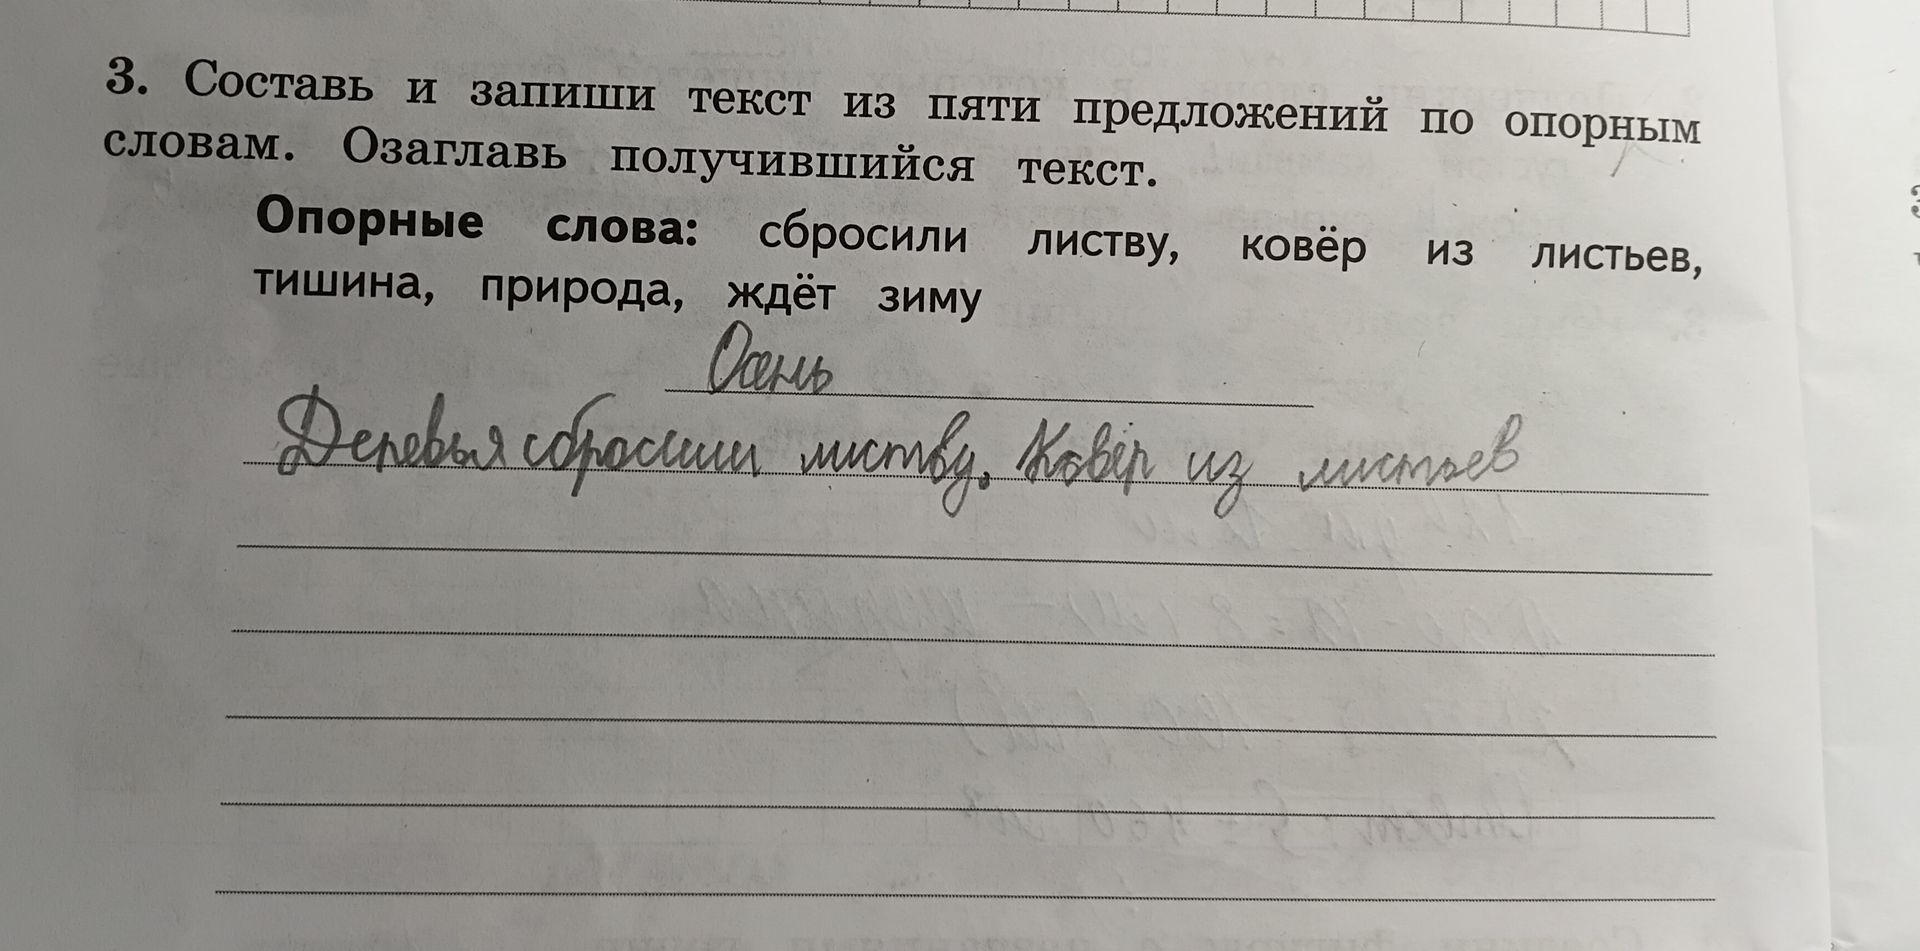 3. Составь и запиши текст из пяти предложений по опорным
словам. Озаглавь получившийся текст.
Опорные слова: сбросили листву, ковёр из листьев,
тишина, природа, ждёт зиму
Осень
Деревья сбросили листву. Ковёр из листьев